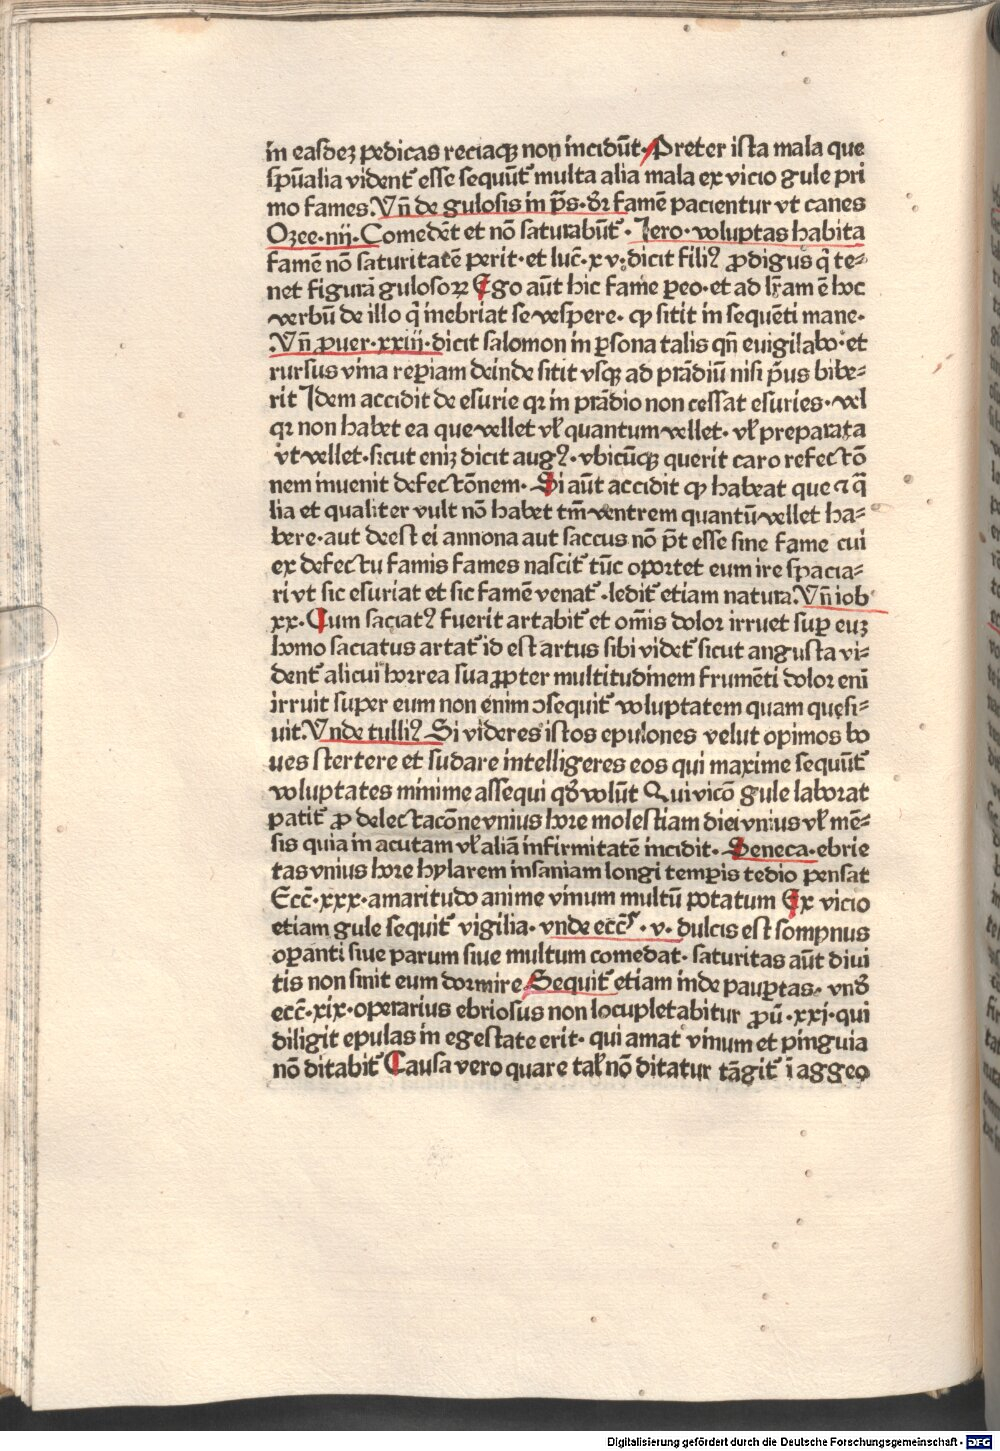 in easdeꝫ pedicas reciaqꝫ non incidūt· Preter ista mala que
spūalia videnť esse sequūť multa alia mala ex vicio gule pri
mo fames. Vñ de gulosis in p̄s· dr̄ famē pacientur vt canes
Ozee·iiij· Comedēt et nō saturabūť· Jero· voluptas habita
famē nō saturitatē perit· et luc̄·xv· dicit filiꝰ ꝓdigus q̄ te⸗
net figurā gulosoꝝ Ego aūt hic fame ꝑeo· et ad lr̄am ē hoc
verbū de illo q̄ inebriat se vespere· qꝫ sitit in sequēti mane·
Vñ ꝓuer·xxiij· dicit salomon in ꝑsona talis qñ euigilabo· et
rursus vina reꝑiam deinde sitit vsqꝫ ad prādiū nisi p̄us bibe⸗
rit Idem accidit de esurie qꝛ in prādio non cessat esuries· vel
qꝛ non habet ea que vellet vł quantum vellet· vł preparata
vt vellet· sicut eniꝫ dicit augꝰ· vbicūqꝫ querit caro refectō
nem inuenit defectōnem· Si aūt accidit qꝫ habeat que ⁊ q̄
lia et qualiter vult nō habet tm̄ ventrem quantū vellet ha⸗
bere· aut deest ei annona aut saccus nō p̄t esse sine fame cui
ex defectu famis fames nasciť tūc oportet eum ire spacia⸗
ri vt sic esuriat et sic famē venať· lediť etiam natura. Vñ iob
xx· Cum saciatꝰ fuerit artabiť et om̄is dolor irruet suꝑ euꝫ
homo saciatus artať id est artus sibi videť sicut angusta vi⸗
denť alicui horrea sua ꝓpter multitudinem frumēti dolor eni
irruit super eum non enim ↄsequiť voluptatem quam quesi⸗
uit. Vnde tulliꝰ Si videres istos epulones velut opimos bo
ues stertere et sudare intelligeres eos qui maxime sequūť
voluptates minime assequi qđ volūt Qui vicō gule laborat
patiť ꝓ delectacōne vnius hore molestiam diei vnius vł mē⸗
sis quia in acutam vł aliā infirmitatē incidit· Seneca· ebrie
tas vnius hore hylarem insaniam longi temꝑis tedio pensat
Ecc̄·xxx· amaritudo anime vinum multū potatum Ex vicio
etiam gule sequiť vigilia· vnde ecc̄ꝭ·v· dulcis est sompnus
oꝑanti siue parum siue multum comedat· saturitas aūt diui
tis non sinit eum dormire Sequiť etiam inde pauꝑtas· vnđ
ecc̄·xix· operarius ebriosus non locupletabitur ꝓū·xxj· qui
diligit epulas in egestate erit· qui amat vinum et pinguia
nō ditabiť Causa vero quare tał nō ditatur tāgiť ī aggeo
Digitalisierung gefördert durch die Deutsche Forschungsgemeinschaft - DFG